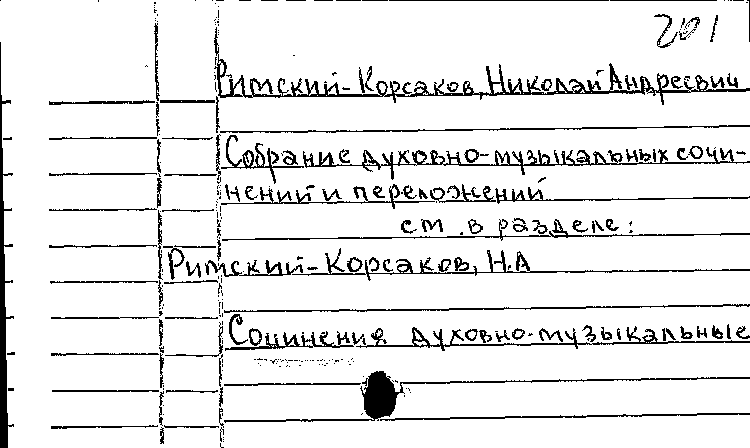 201
Римский-Корсаков, Николай Андреевич
Собрание духовно-музыкальных сочи-
нений и переложений
см. в разделе:
Римский-Корсаков, Н.А
Сочинения духовно-музыкальные